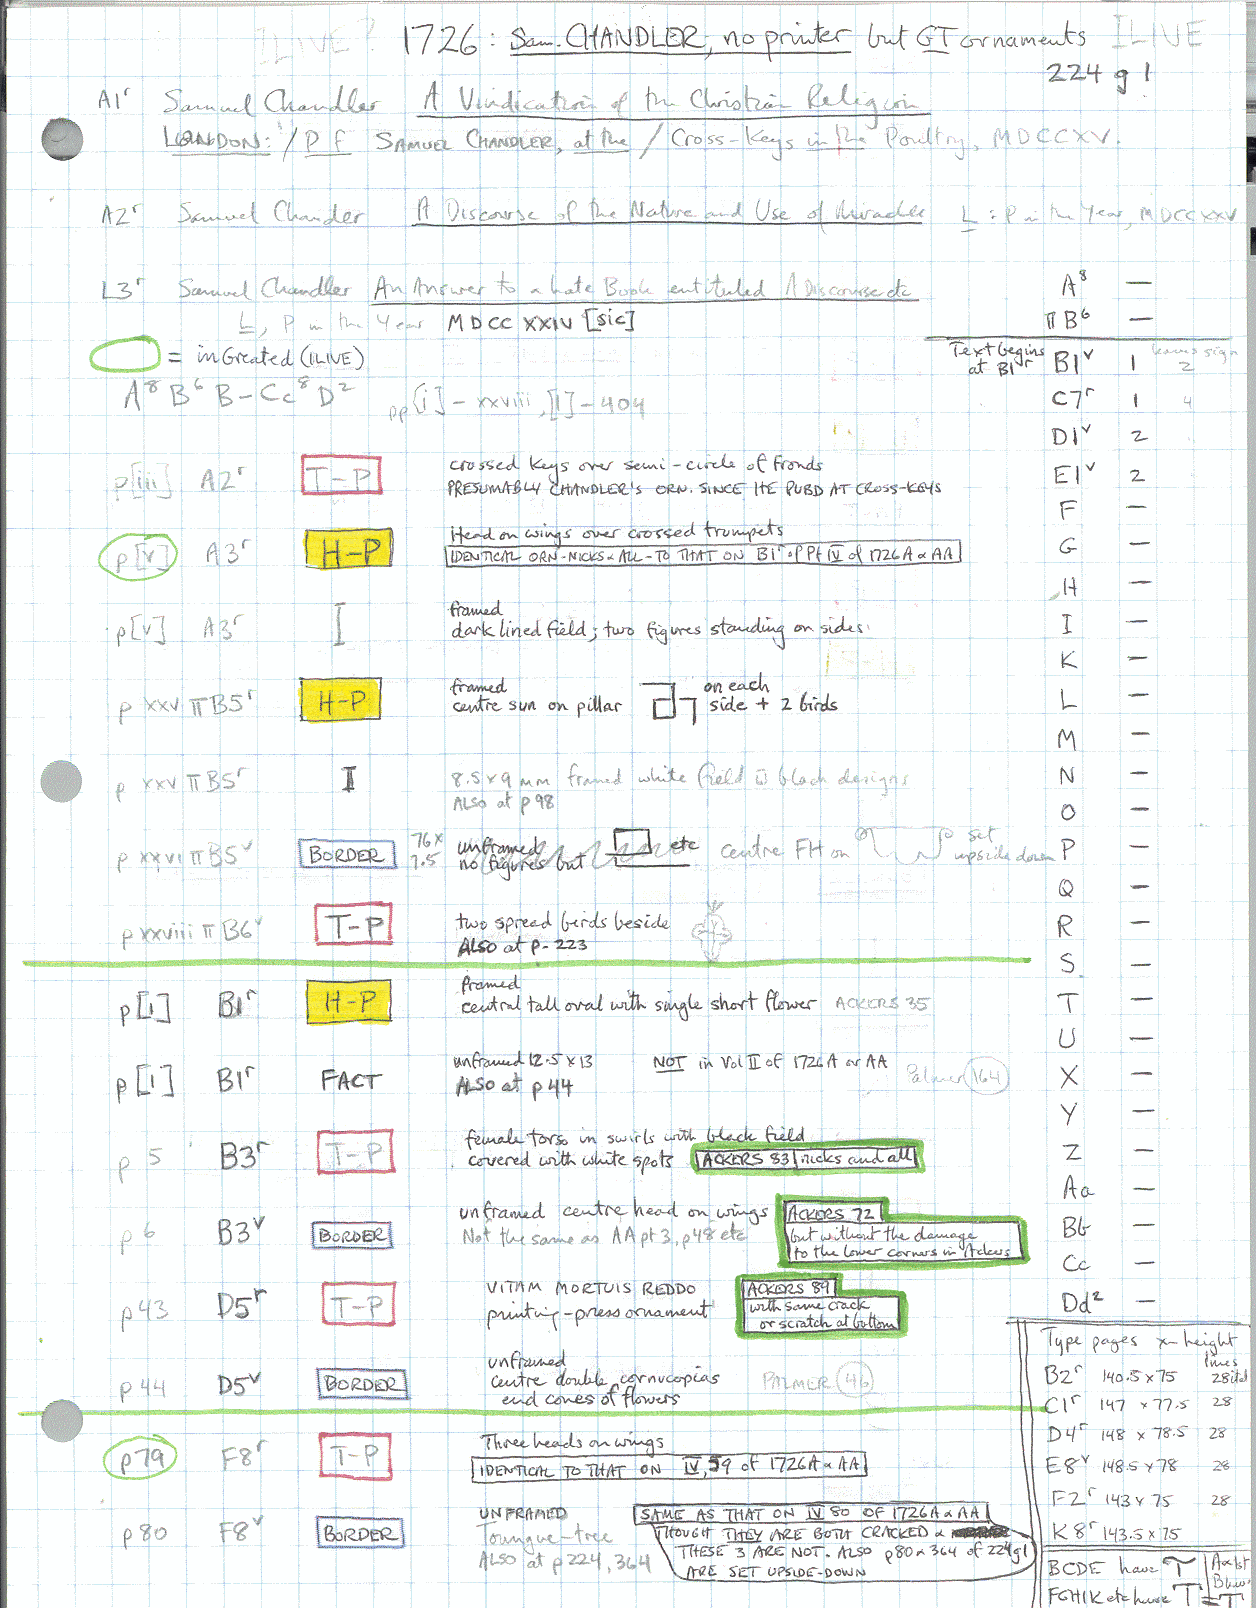 ILIVE? 1726: Sam. CHANDLER, no printer but GT ornaments ILIVE
224 g 1
A1r Samuel Chandler A Vindication of the Christian Religion
LONDON: / P f SAMUEL CHANDLER, at the / Cross-Keys in the Poultry, MDCCXV.
A2r Samuel Chandler A Discourse of the Nature and Use of Miracles L: P in the Year, MDCCXXV
L3r Samuel Chandler An Answer to a Late Book entituled A Discourse etc
L, P in the Year MDCCXXIV [sic]
= in Greated (ILIVE)
A8 B6 B-Cc8 D2 pp [i]-xxviii, [1]-404
p[iii] A2r T-P crossed keys over semi-circle of fronds
PRESUMABLY CHANDLER'S ORN. SINCE HE PUBD AT CROSS-KEYS
p[v] A3r H-P Head on wings over crossed trumpets
IDENTICAL ORN-NICKS & ALL-TO THAT ON B1r of Pt IV of 1726A & AA
p[v] A3r I framed
dark lined field; two figures standing on sides
p xxv πB5r H-P framed
centre sun on pillar on each side + 2 birds
p xxv πB5r I 8.5 x 9 mm framed white field w black designs
ALSO at p 98
p xxvi πB5v BORDER 76 x 7.5 unframed
no figures but etc centre FH on set upside down
p xxviii πB6v T-P two spread birds beside
ALSO at p-223
p[1] B1r H-P framed
central tall oval with single short flower ACKERS 35
p[1] B1r FACT unframed 12.5 x 13 NOT in Vol II of 1726A or AA
ALSO at p 44 Palmer 164
p 5 B3r T-P female torso in swirls with black field
covered with white spots ACKERS 83 nicks and all
p 6 B3v BORDER unframed centre head on wings ACKERS 72
Not the same as AA pt 3, p48 etc but without the damage
to the lower corners in Ackers
p 43 D5r T-P VITAM MORTUIS REDDO ACKERS 89
printing-press ornament with same crack
or scratch at bottom
p 44 D5v BORDER unframed
centre double cornucopias PALMER 46
end cones of flowers
p79 F8r T-P Three heads on wings
IDENTICAL TO THAT ON IV, 59 of 1726A & AA
p 80 F8v BORDER UNFRAMED SAME AS THAT ON IV 80 OF 1726A & AA
Toungue-tree THOUGH THEY ARE BOTH CRACKED &
ALSO at p 224, 364 THESE 3 ARE NOT. ALSO p80 & 364 of 224g1
ARE SET UPSIDE-DOWN
A8 —
πB6 —
Text begins at B1r
leaves sign
B1v 1 2
C7r 1 4
D1v 2
E1v 2
F —
G —
H —
I —
K —
L —
M —
N —
O —
P —
Q —
R —
S —
T —
U —
X —
Y —
Z —
Aa —
Bb —
Cc —
Dd2 —
Type pages x-height
lines
B2r 140.5 x 75 28 ital
C1r 147 x 77.5 28
D4r 148 x 78.5 28
E8v 148.5 x 78 28
F2r 143 x 75 28
K8r 143.5 x 75
BCDE have T
FGHIK etc have T = T